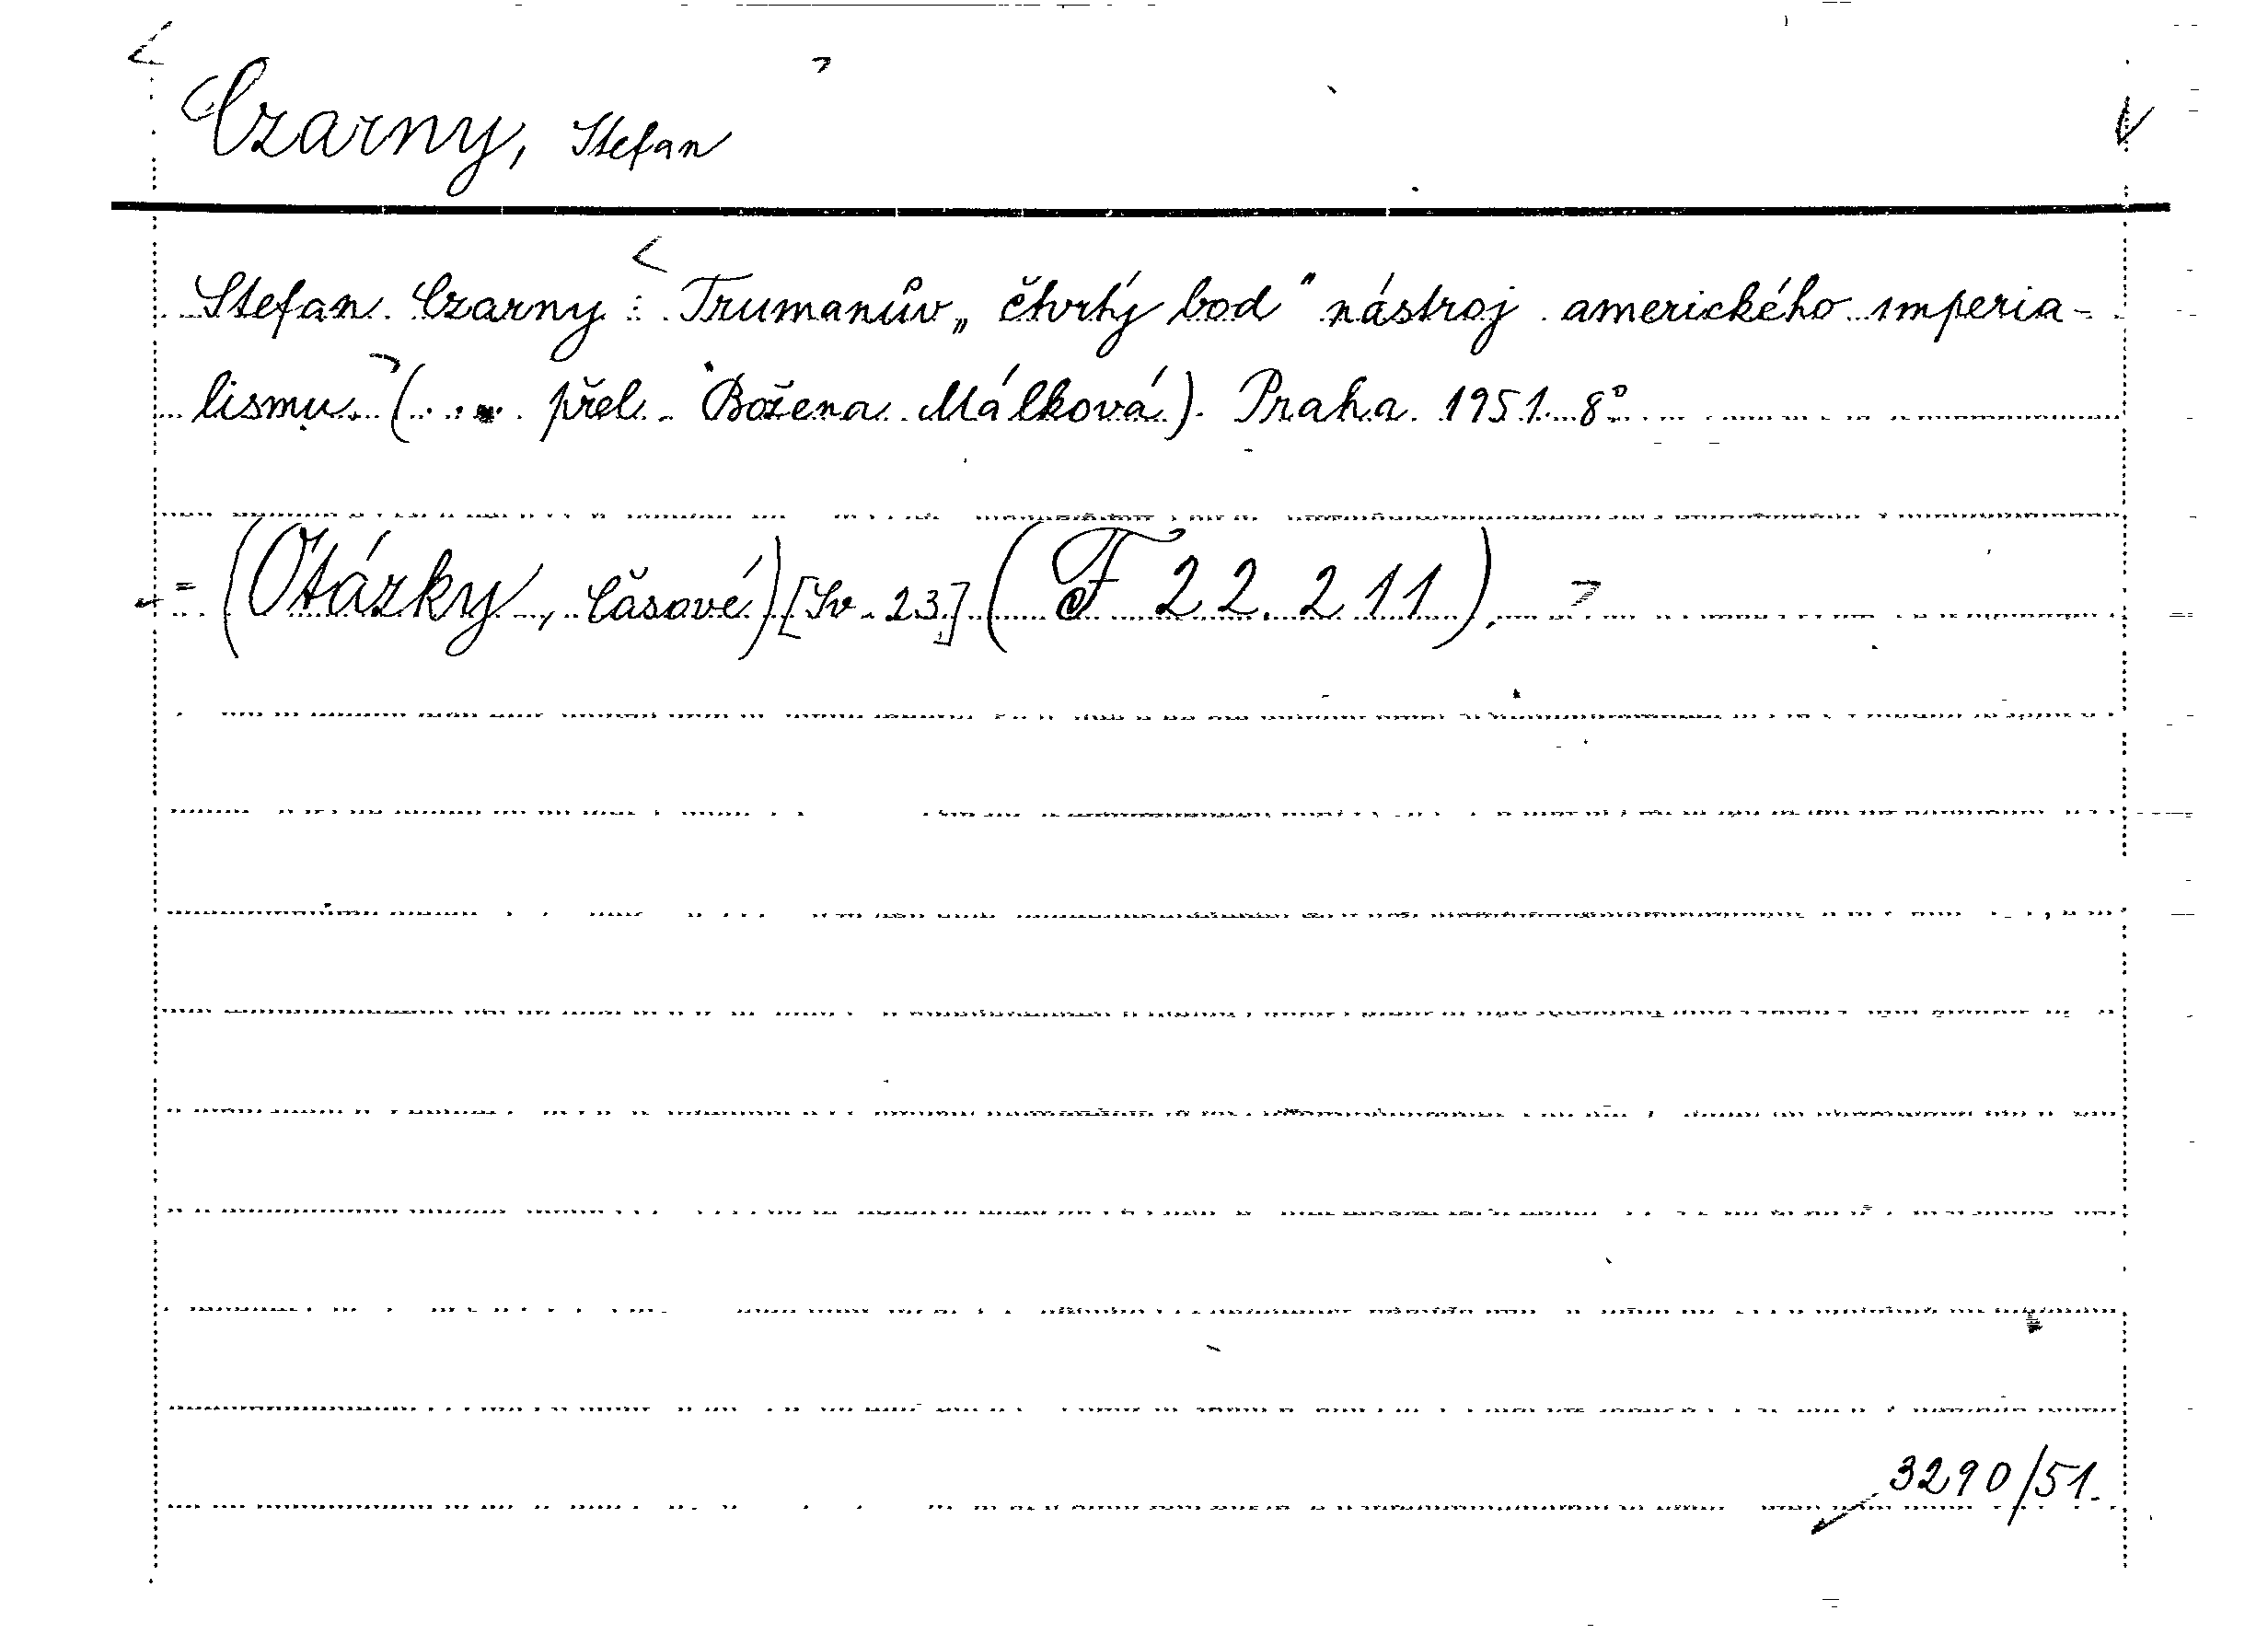 Czarny, Stefan
Stefan Czarny: Trumanův „čtvrtý bod" nástroj amerického imperia-
lismu. (... přel. Božena Málková). Praha 1951. 8°
= (Otázky, Časové) [Sv. 23] (F 22.211).
3290/51.